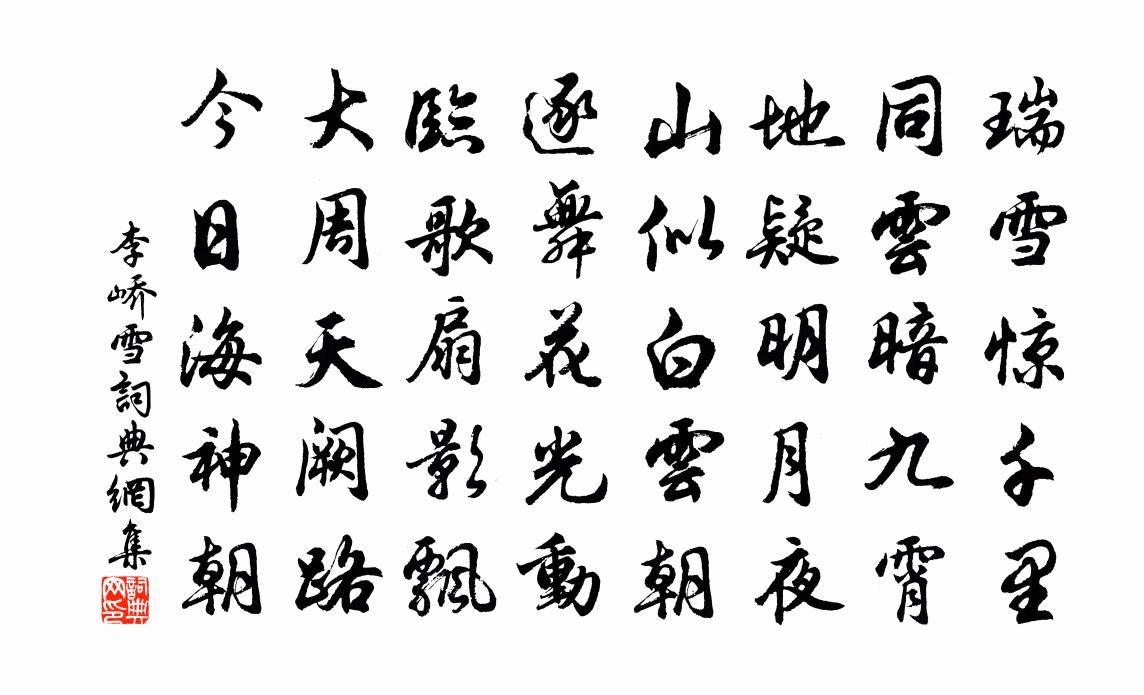 瑞雪惊千里
同雲暗九霄
地疑明月夜
山似白雲朝
逐舞花光動
臨歌扇影飄
大周天闕路
今日海神朝
李嶠雪詞典網集
詞典网印